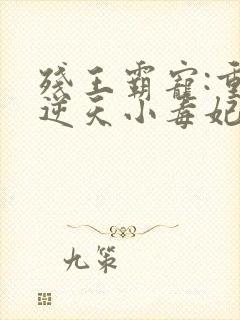 残王霸宠:重
逆天小毒妃
九策